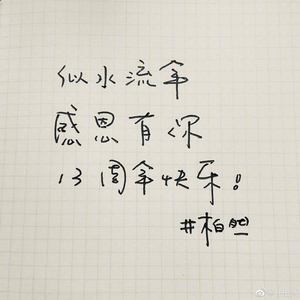 似水流年
感恩有你
13周年快乐!
#柏